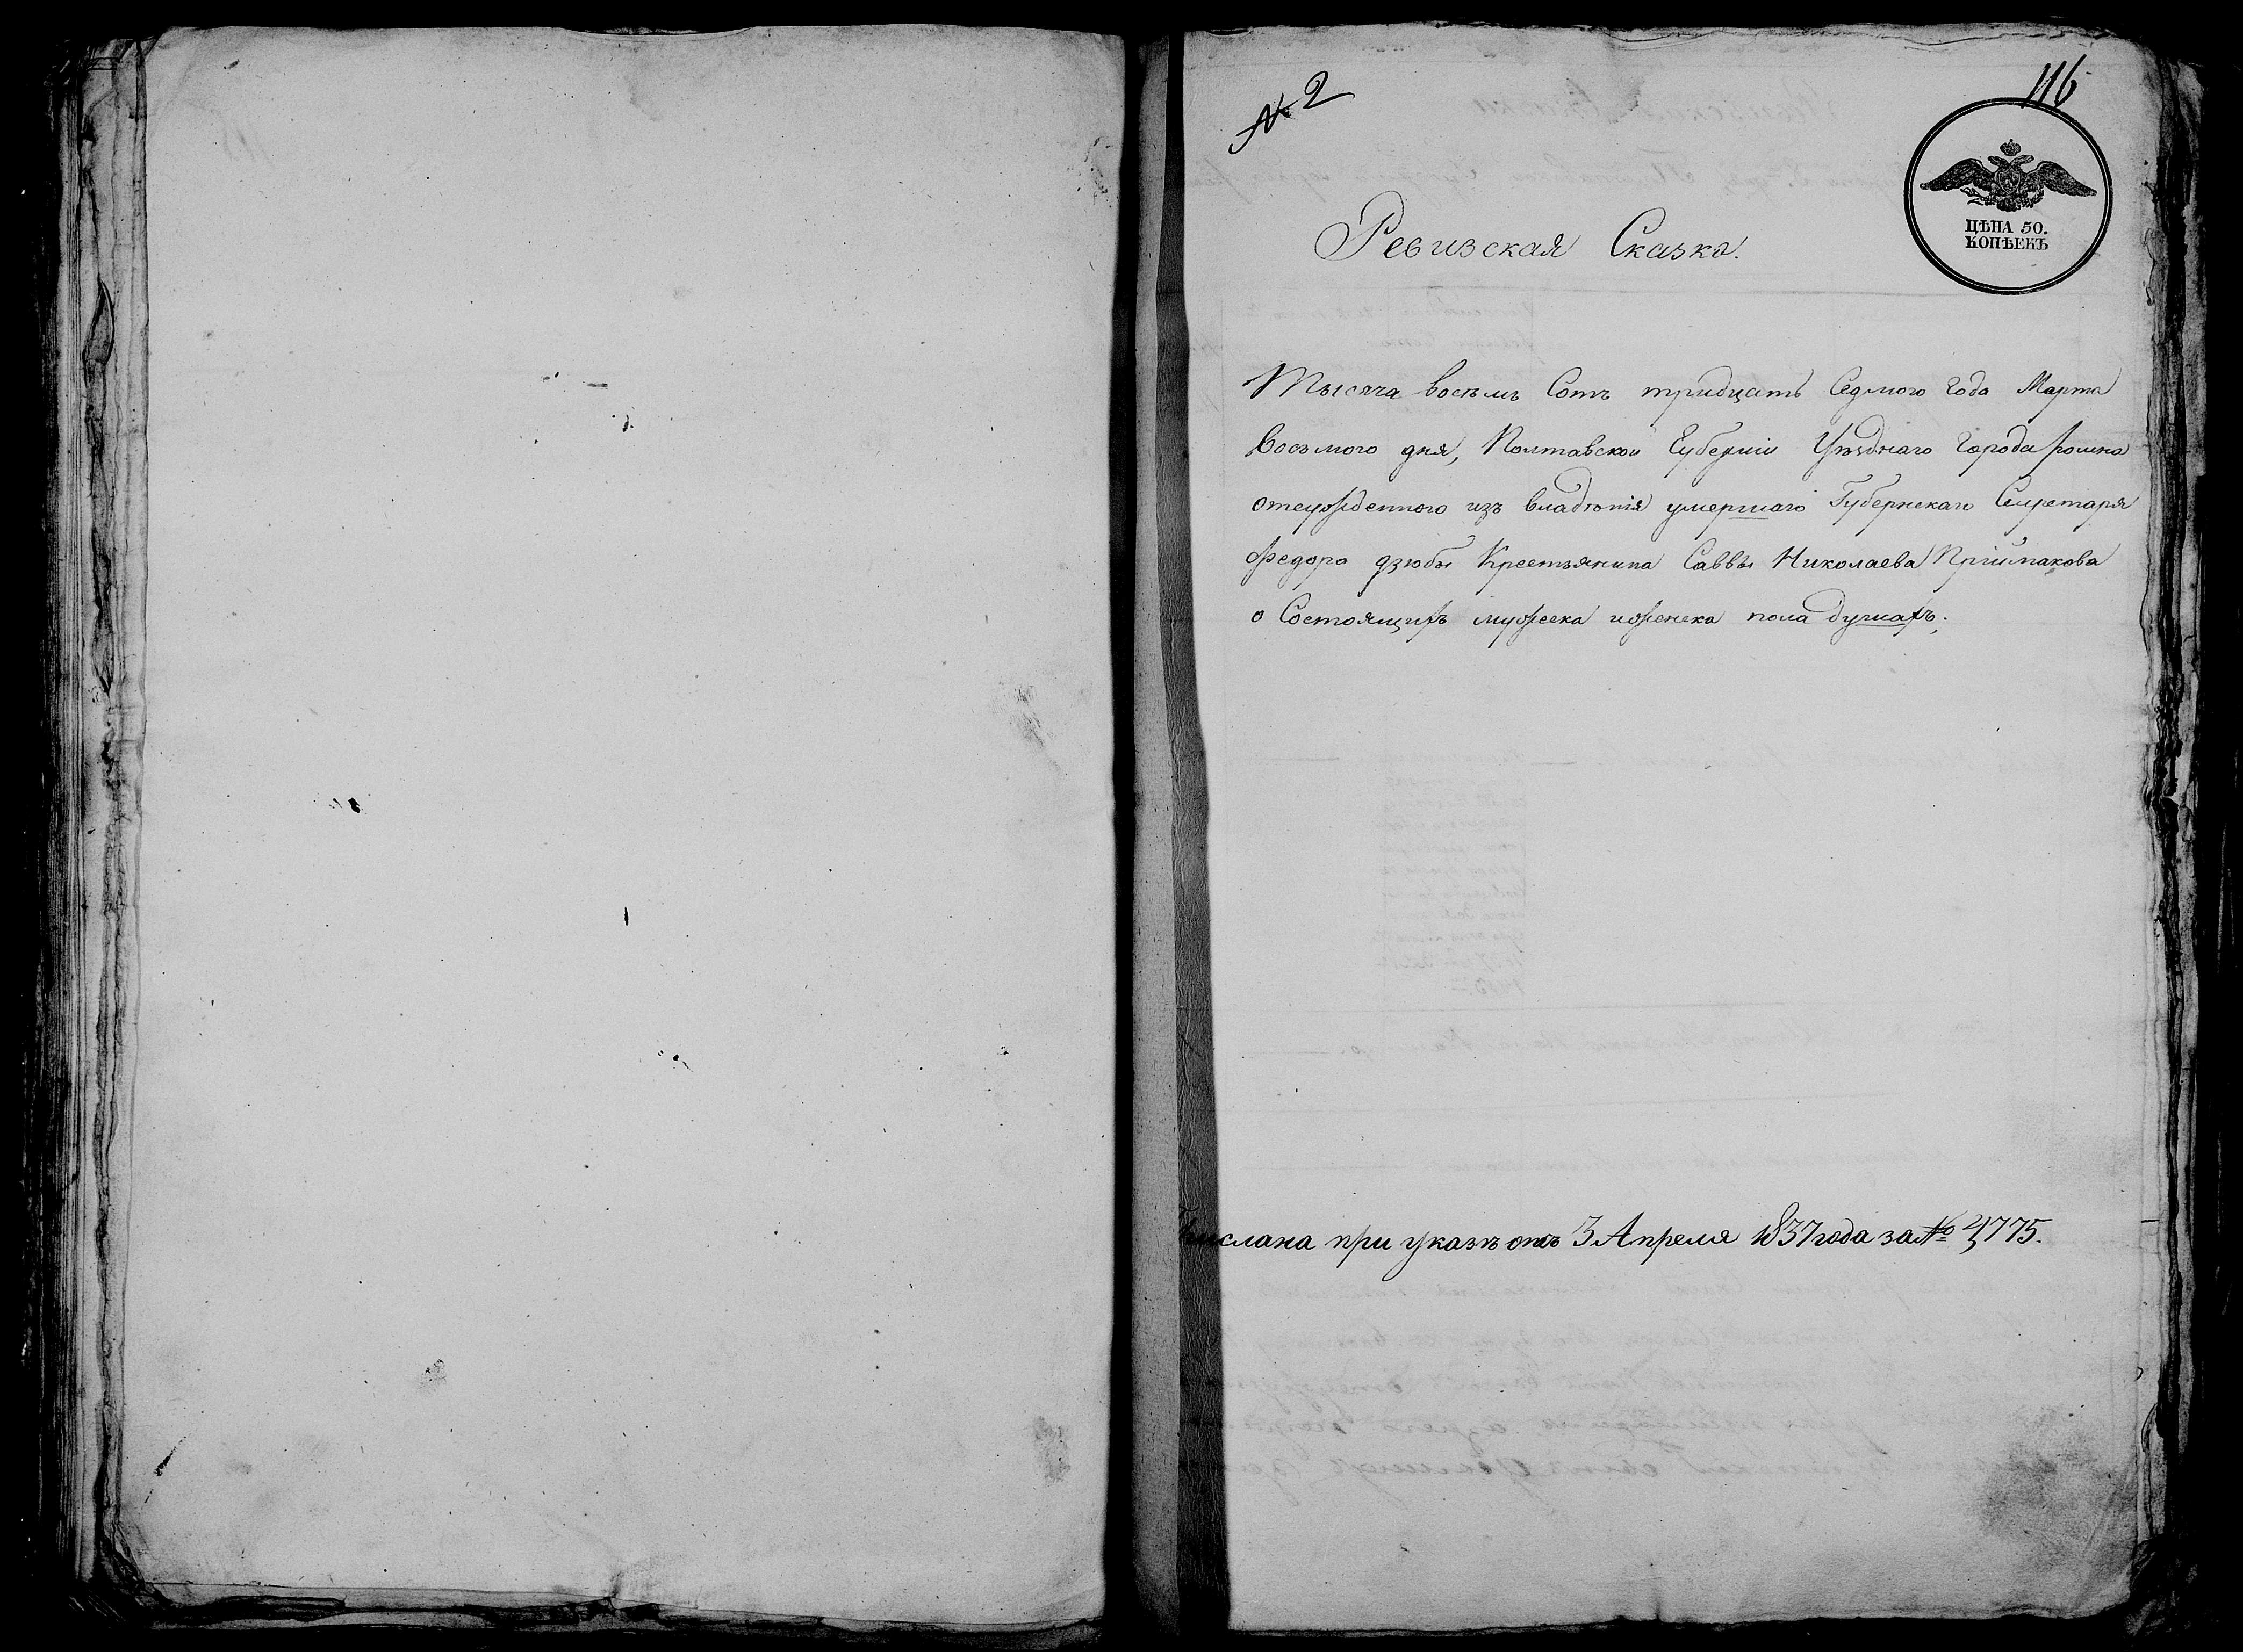 № 2
116
ЦѢНА 50.
КОПѢЕКЪ
Ревизская Сказка.
Тысяча восемь Сотъ тридцать Седмого года Марта
Восьмого дня, Полтавской Губерніи Уѣзднаго Города ромна
отсужденного изъ владѣнія умершаго Губернскаго Секретаря
Федора дзюбы Крестьянина Саввы Николаева Пріймакова
о Состоящихъ мужеска иженска пола душахъ.
слана при указѣ отъ 3 Апреля 1837 года за № 4775.